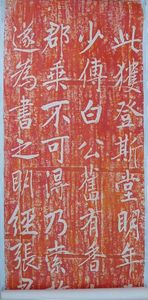 此獲登斯堂明年
少傅白公舊有香
郡乘不可泯乃索
遂為書之明經張